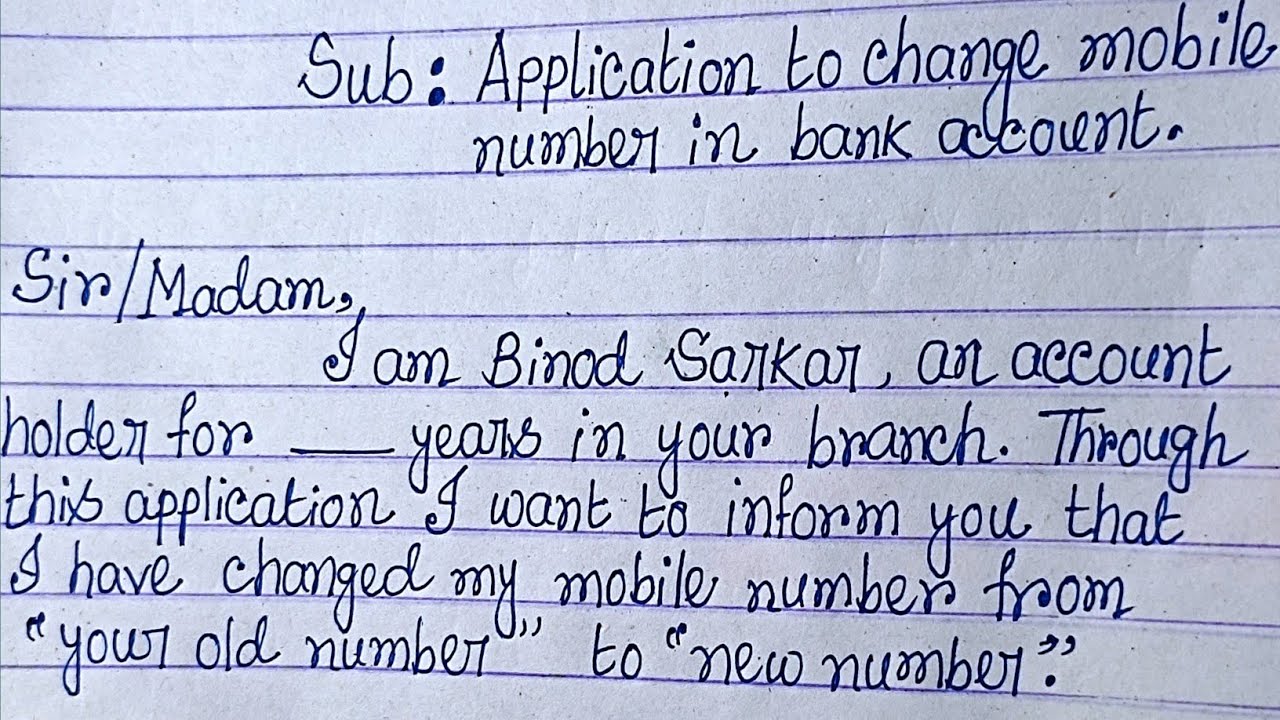 Sub: Application to change mobile
number in bank account.
Sir/Madam,
I am Binod Sarkar, an account
holder for ___ years in your branch. Through
this application I want to inform you that
I have changed my mobile number from
"your old number" to "new number".